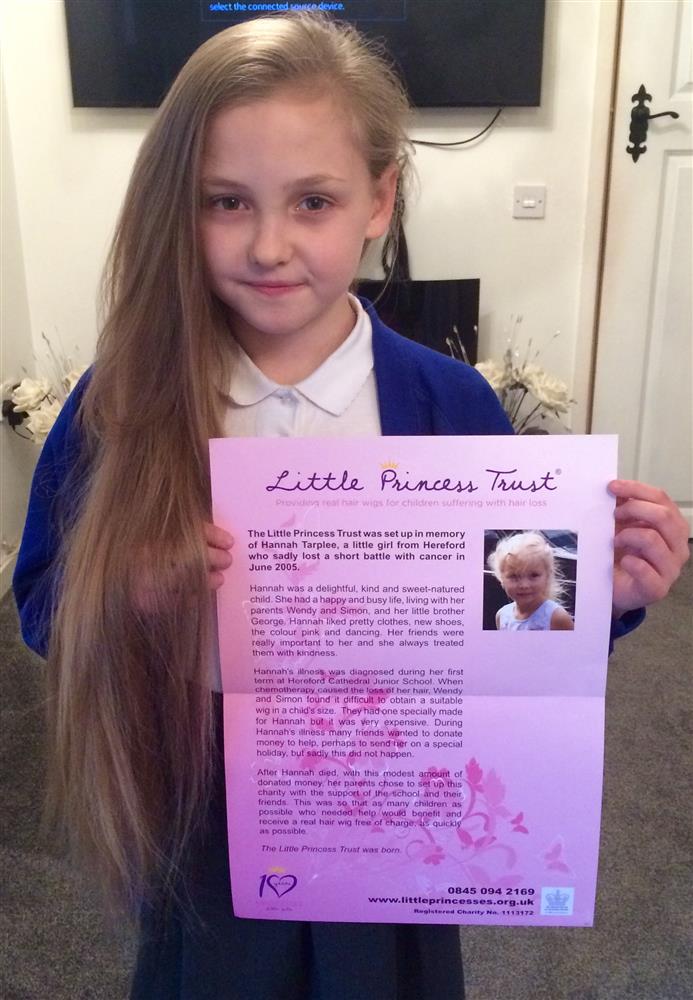 select the connected source device.
Little Princess Trust®
Providing real hair wigs for children suffering with hair loss
The Little Princess Trust was set up in memory
of Hannah Tarplee, a little girl from Hereford
who sadly lost a short battle with cancer in
June 2005.
Hannah was a delightful, kind and sweet-natured
child. She had a happy and busy life, living with her
parents Wendy and Simon, and her little brother
George. Hannah liked pretty clothes, new shoes,
the colour pink and dancing. Her friends were
really important to her and she always treated
them with kindness.
Hannah's illness was diagnosed during her first
term at Hereford Cathedral Junior School. When
chemotherapy caused the loss of her hair, Wendy
and Simon found it difficult to obtain a suitable
wig in a child's size. They had one specially made
for Hannah but it was very expensive. During
Hannah's illness many friends wanted to donate
money to help, perhaps to send her on a special
holiday, but sadly this did not happen.
After Hannah died, with this modest amount of
donated money, her parents chose to set up this
charity with the support of the school and their
friends. This was so that as many children as
possible who needed help would benefit and
receive a real hair wig free of charge, as quickly
as possible.
The Little Princess Trust was born.
10 years
0845 094 2169
www.littleprincesses.org.uk
Registered Charity No. 1113172